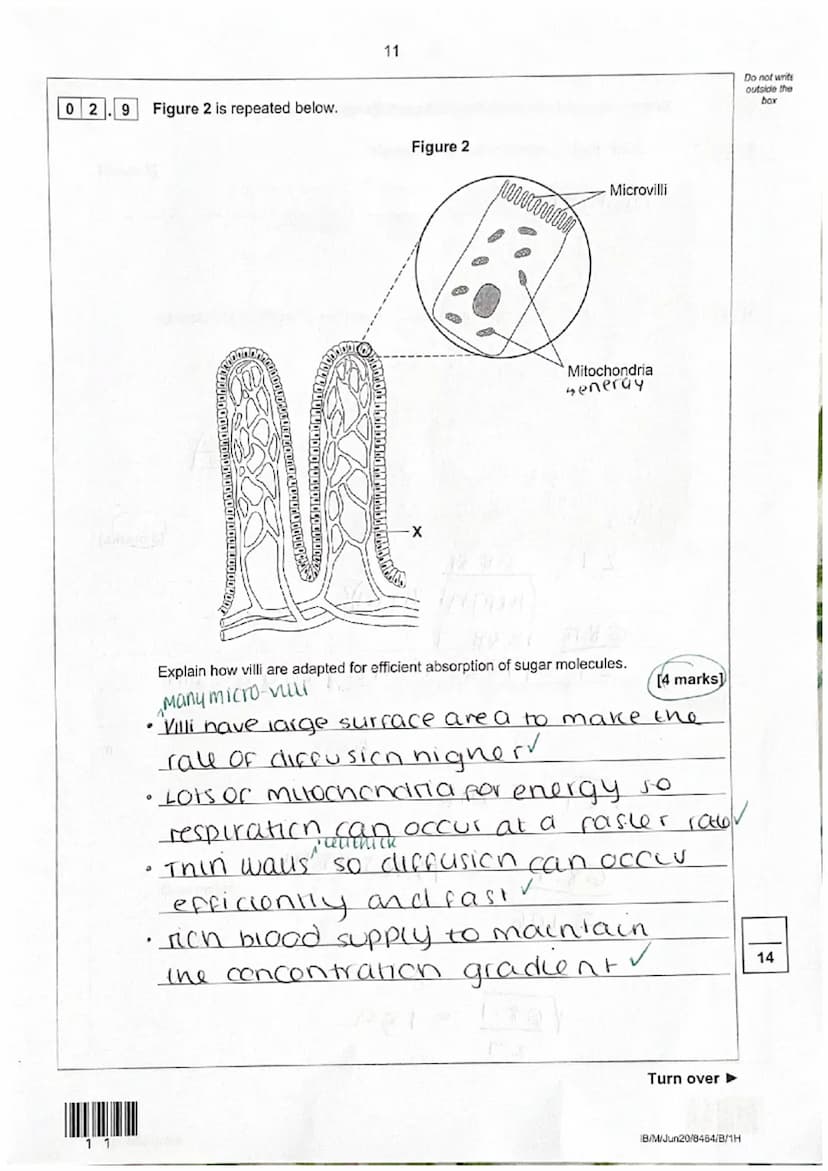 11
Do not write
outside the
box
0 2 . 9 Figure 2 is repeated below.
Figure 2
Microvilli
Mitochondria
energy
X
Explain how villi are adapted for efficient absorption of sugar molecules.
[4 marks]
Many micro-villi
• Villi have large surface area to make the
rate of diffusion higher ✓
• Lots of mitochondria for energy so
respiration can occur at a faster rate ✓
1 cell thick
• Thin walls so diffusion can occur
efficiently and fast ✓
• rich blood supply to maintain
the concentration gradient ✓
14
Turn over ►
1 1
IB/M/Jun20/8464/B/1H